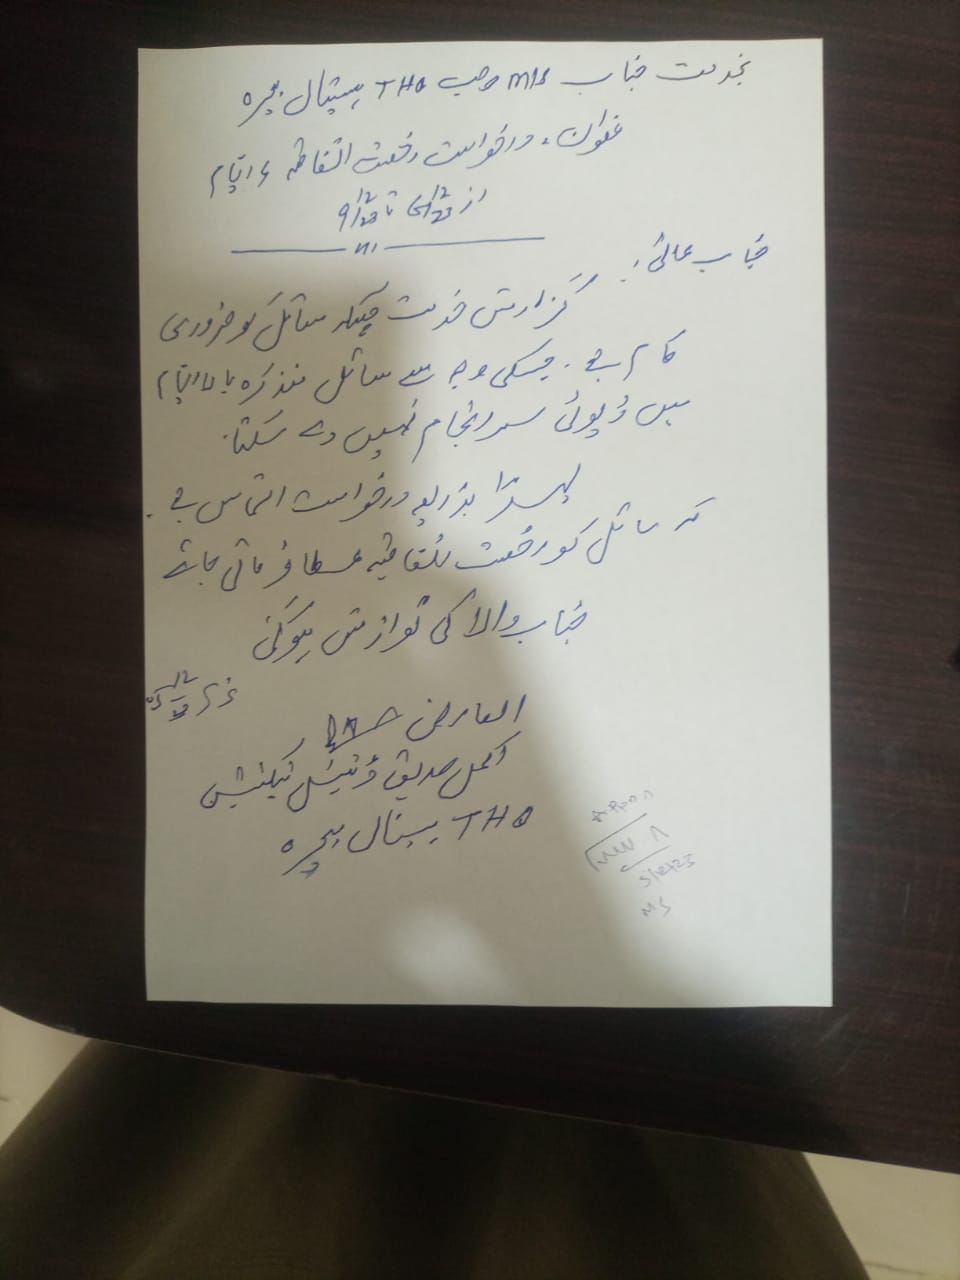 بخدمت جناب M/S صاحب THQ ہسپتال بھیرہ
عنوان: درخواست رخصت اتفاقیہ ایام
از تا 9/12/23
جناب عالی!
گزارش خدمت ہیکہ سائل کو ضروری
کام ہے۔ جسکی وجہ سے سائل متذکرہ بالا ایام
میں ڈیوٹی سرانجام نہیں دے سکتا۔
لہذا بذریعہ درخواست التماس ہے۔
کہ سائل کو رخصت اتفاقیہ عطا فرمائی جائے
جناب والا کی نوازش ہوگی
العارض
اکمل صدیق ڈینٹل ٹیکنیشن
THQ ہسپتال بھیرہ
5/12/23
MS